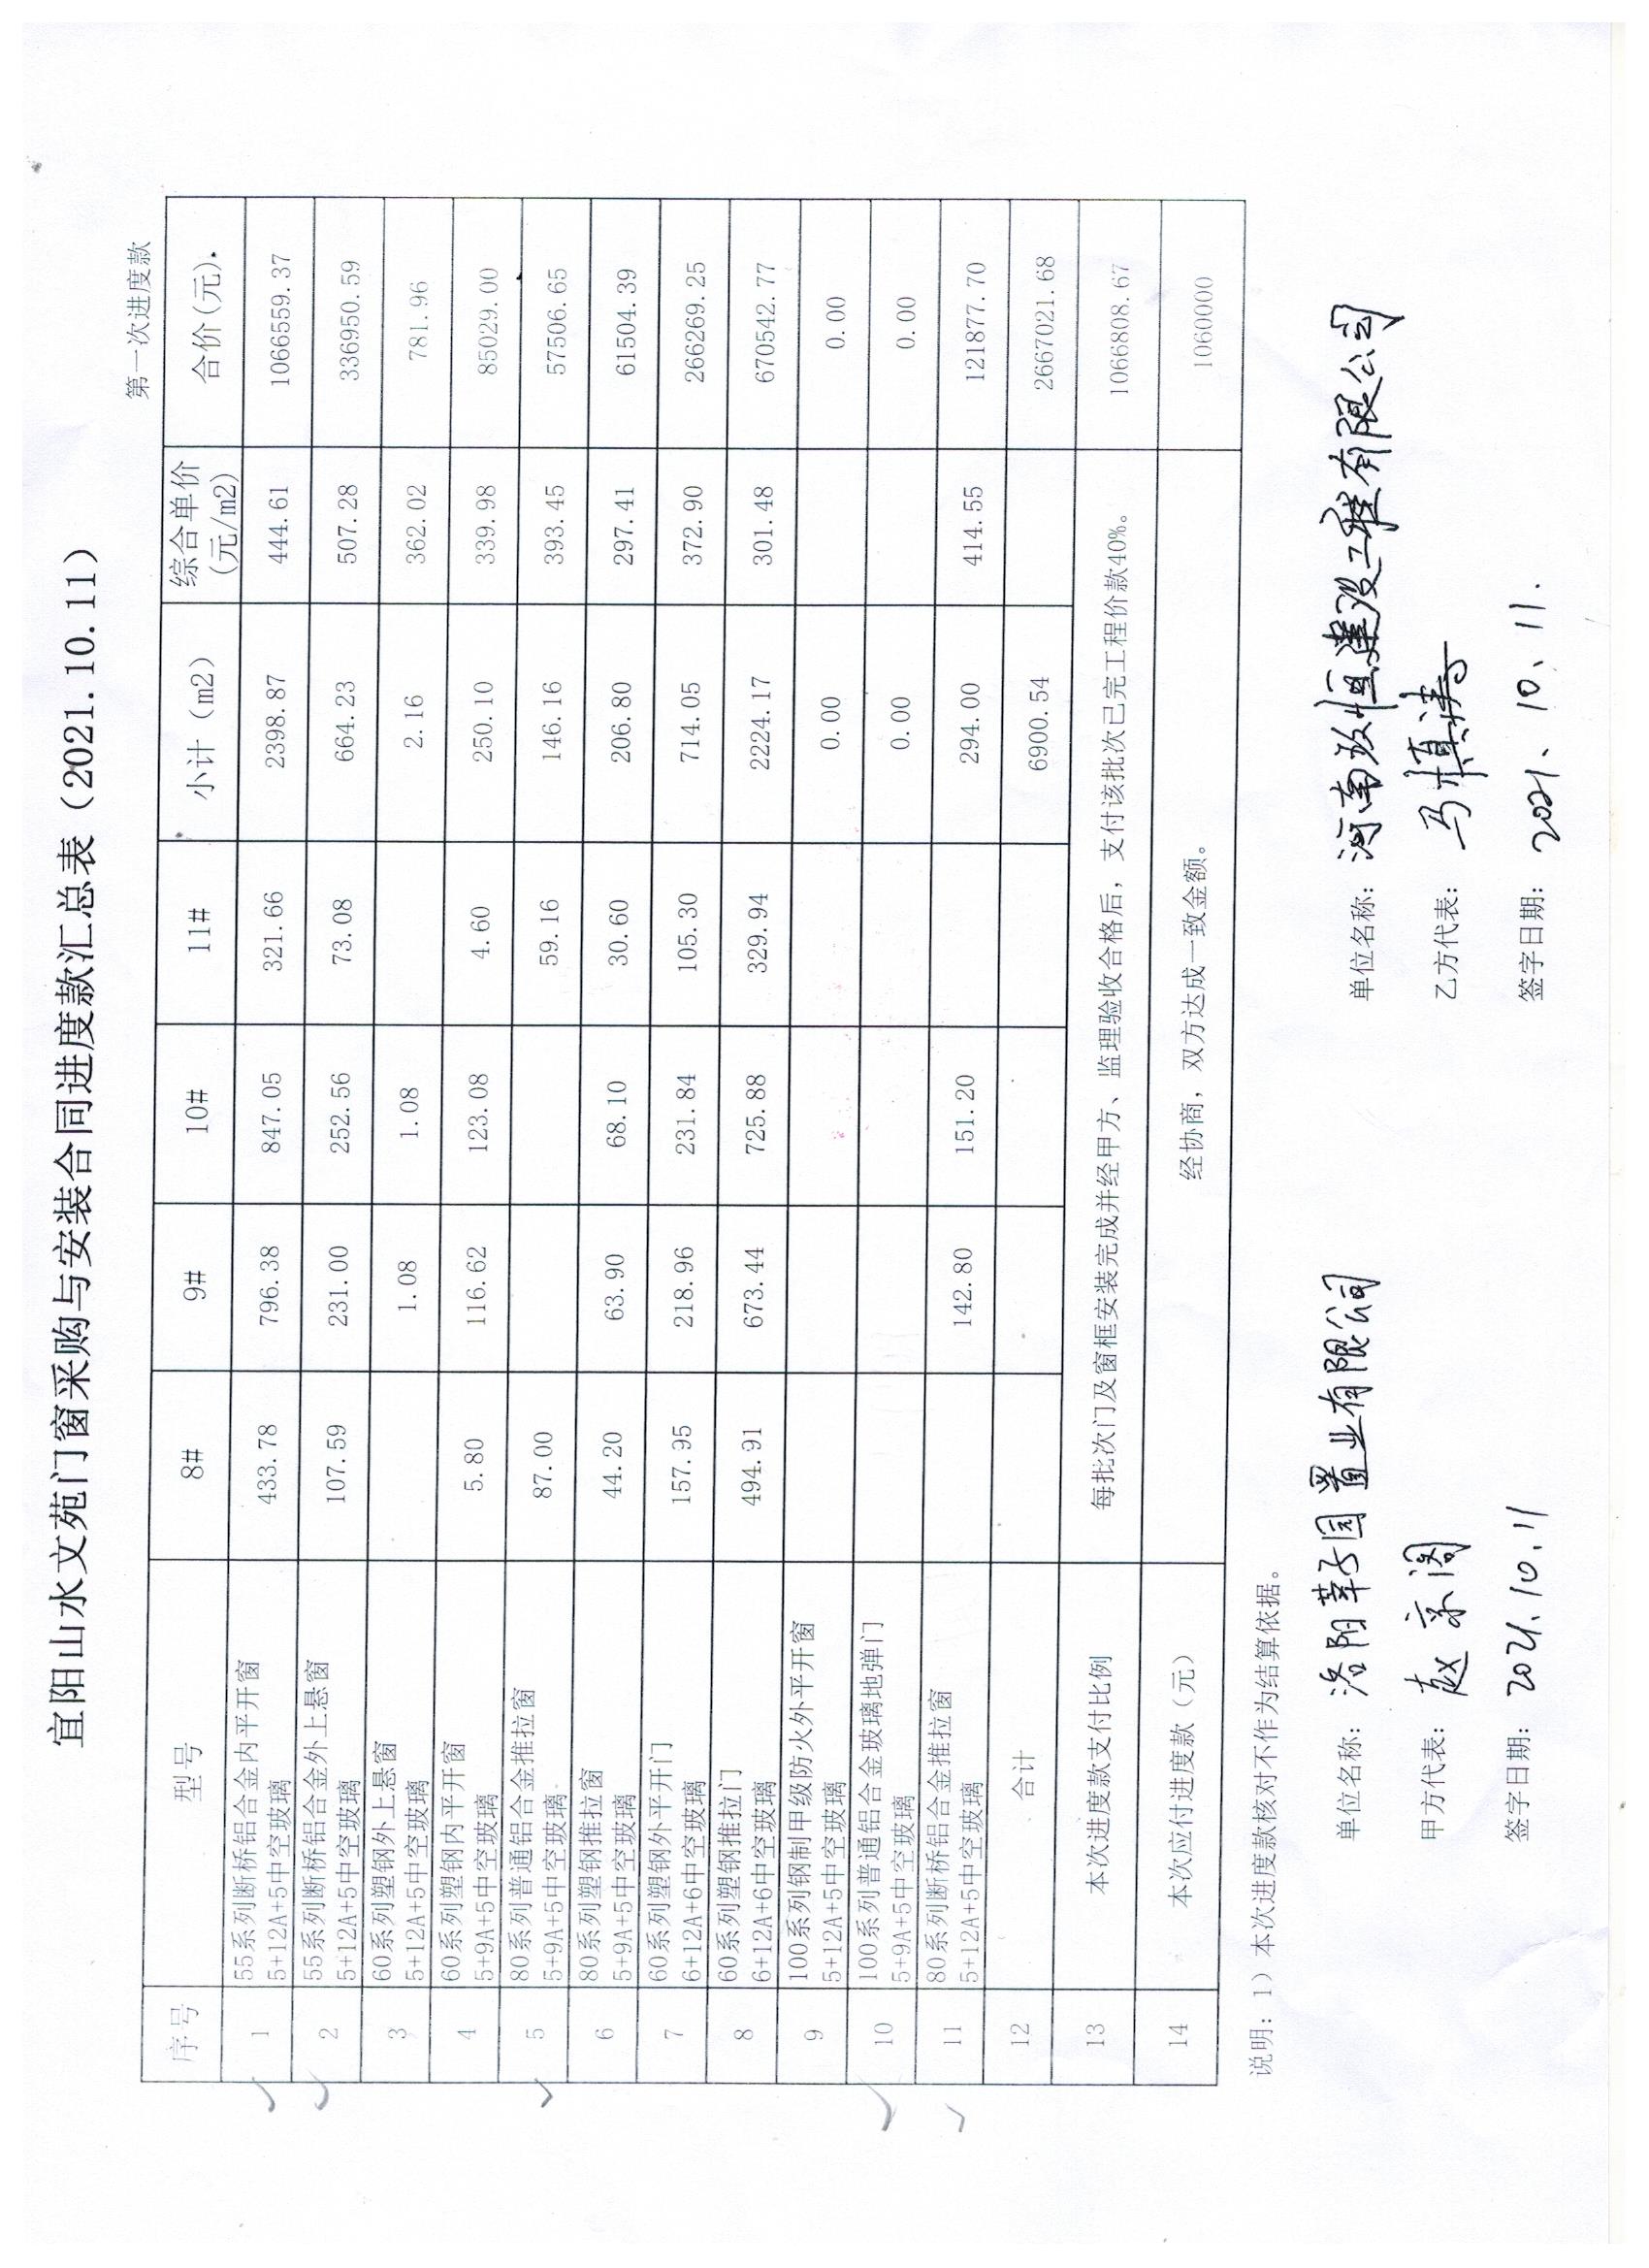 宜阳山水文苑门窗采购与安装合同进度款汇总表（2021.10.11）
第一次进度款
序号 型号 8# 9# 10# 11# 小计（m2） 综合单价(元/m2) 合价(元)
1 55系列断桥铝合金内平开窗 433.78 796.38 847.05 321.66 2398.87 444.61 1066559.37
5+12A+5中空玻璃
2 55系列断桥铝合金外上悬窗 107.59 231.00 252.56 73.08 664.23 507.28 336950.59
5+12A+5中空玻璃
3 60系列塑钢外上悬窗 1.08 1.08 2.16 362.02 781.96
5+12A+5中空玻璃
4 60系列塑钢内平开窗 5.80 116.62 123.08 4.60 250.10 339.98 85029.00
5+9A+5中空玻璃
5 80系列普通铝合金推拉窗 87.00 59.16 146.16 393.45 57506.65
5+9A+5中空玻璃
6 80系列塑钢推拉窗 44.20 63.90 68.10 30.60 206.80 297.41 61504.39
5+9A+5中空玻璃
7 60系列塑钢外平开门 157.95 218.96 231.84 105.30 714.05 372.90 266269.25
6+12A+6中空玻璃
8 60系列塑钢推拉门 494.91 673.44 725.88 329.94 2224.17 301.48 670542.77
6+12A+6中空玻璃
9 100系列钢制甲级防火外平开窗 0.00 0.00
5+12A+5中空玻璃
10 100系列普通铝合金玻璃地弹门 0.00 0.00
5+9A+5中空玻璃
11 80系列断桥铝合金推拉窗 142.80 151.20 294.00 414.55 121877.70
5+12A+5中空玻璃
12 合计 6900.54 2667021.68
13 本次进度款支付比例 每批次门及窗框安装完成并经甲方、监理验收合格后，支付该批次已完工程价款40%。 1066808.67
14 本次应付进度款（元） 经协商，双方达成一致金额。 1060000
说明：1）本次进度款核对不作为结算依据。
单位名称：洛阳莘子园置业有限公司 单位名称：河南玖恒建设工程有限公司
甲方代表：赵京阁 乙方代表：马慎涛
签字日期：2021.10.11 签字日期：2021.10.11.